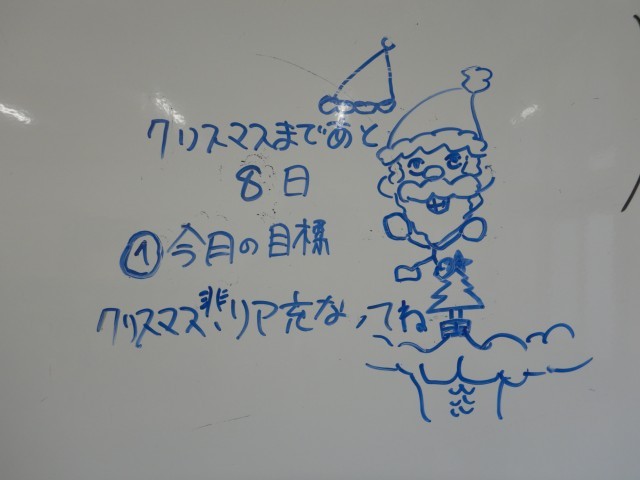 クリスマスまであと
8日
①今月の目標
クリスマス悲リア充なってね